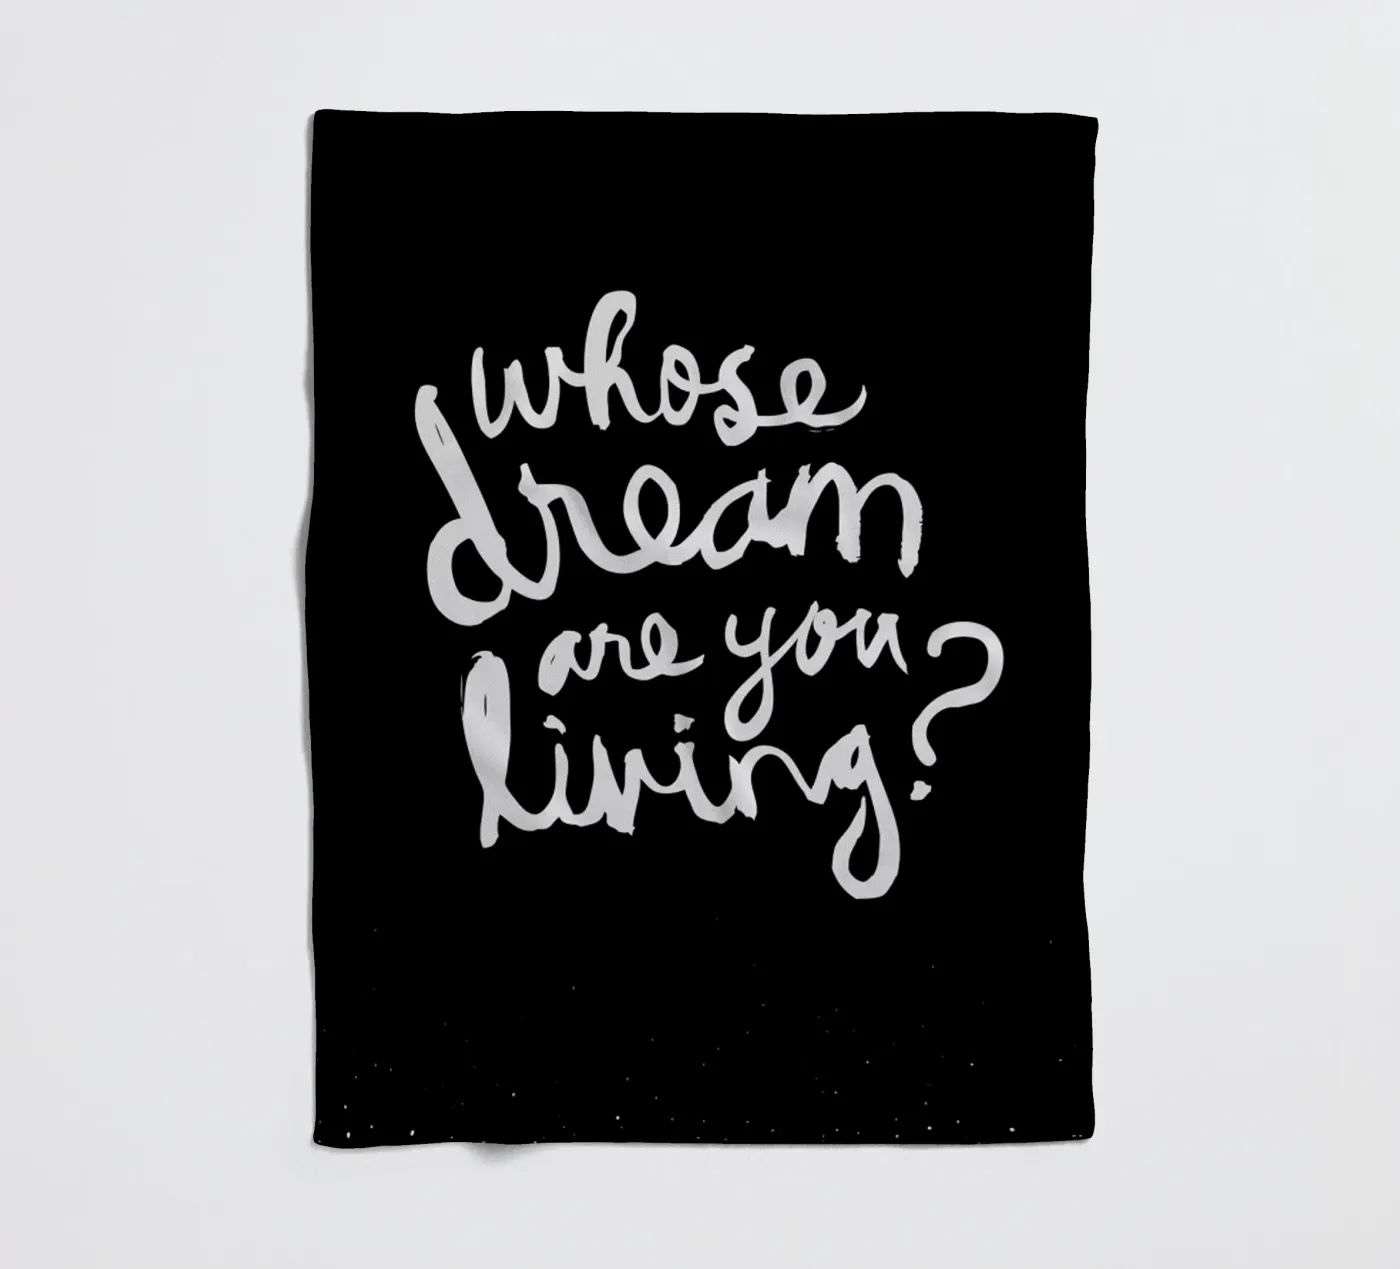 whose
dream
are you
living?